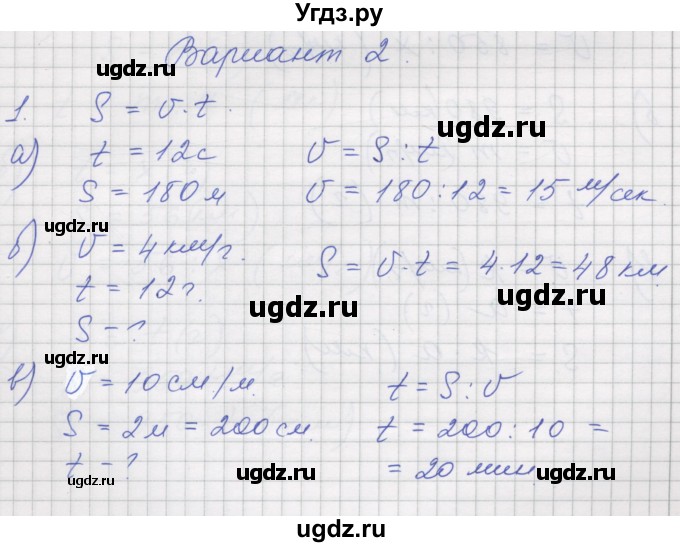 Угдз.ру
Вариант 2.
ugdz.ru
1. S = v·t.
ugdz.ru
а) t = 12с v = S : t
S = 180 м v = 180 : 12 = 15 м/сек.
ugdz.ru
б) v = 4 км/г. S = v·t = 4·12 = 48 км
t = 12 г.
ugdz.ru
S - ?
ugdz.ru
в) v = 10 см/м. t = S : v
ugdz.ru
S = 2м = 200 см. t = 200 : 10 =
t - ? = 20 мин
ugdz.ru ugdz.ru
ugdz.ru